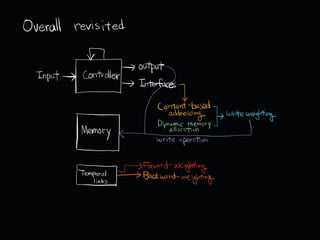 Overall revisited
output
Input
Controller
Interface
Content-based
addressing
Write weighting
Dynamic memory
allocation
Memory
write operation
Temporal
links
Forward-weighting
Backward-weighting